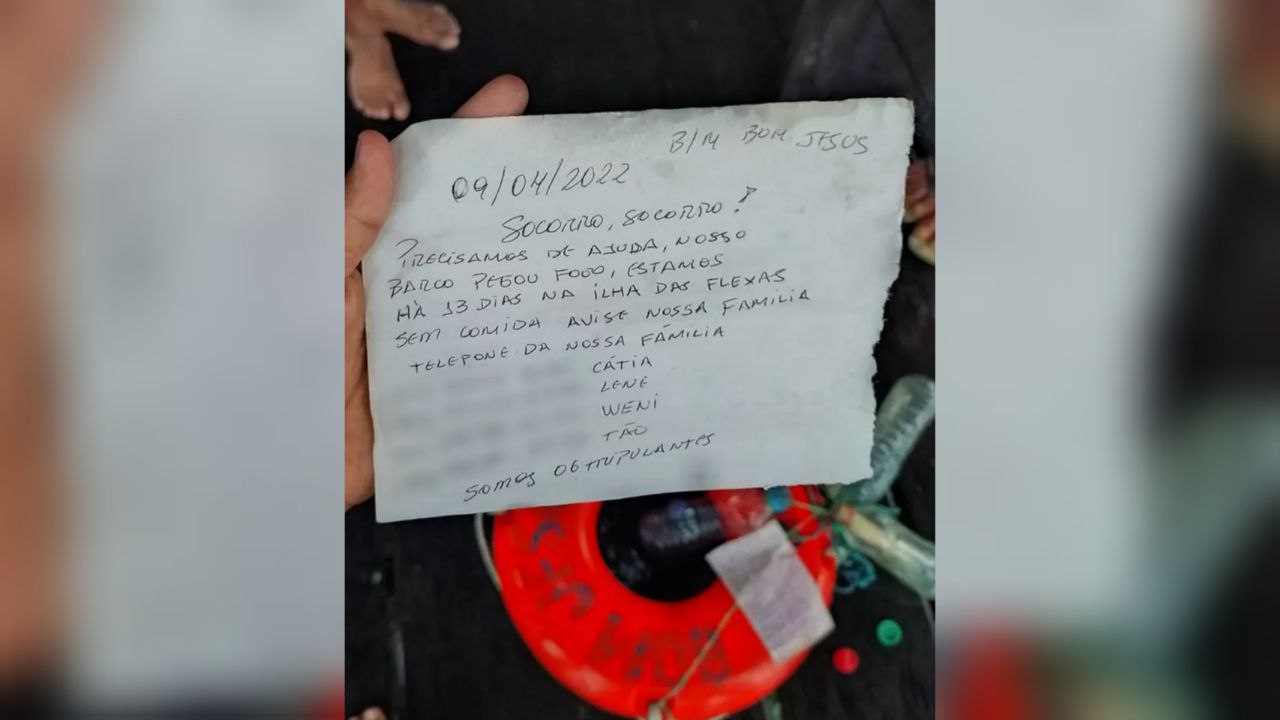 B/M BOM JESUS
09/04/2022
SOCORRO, SOCORRO!
PRECISAMOS DE AJUDA, NOSSO
BARCO PEGOU FOGO, ESTAMOS
HÀ 13 DIAS NA ILHA DAS FLEXAS
SEM COMIDA AVISE NOSSA FAMILIA
TELEPONE DA NOSSA FÁMILIA
CÁTIA
LENE
WENI
TÃO
SOMOS 06 TRIPULANTES
BOM